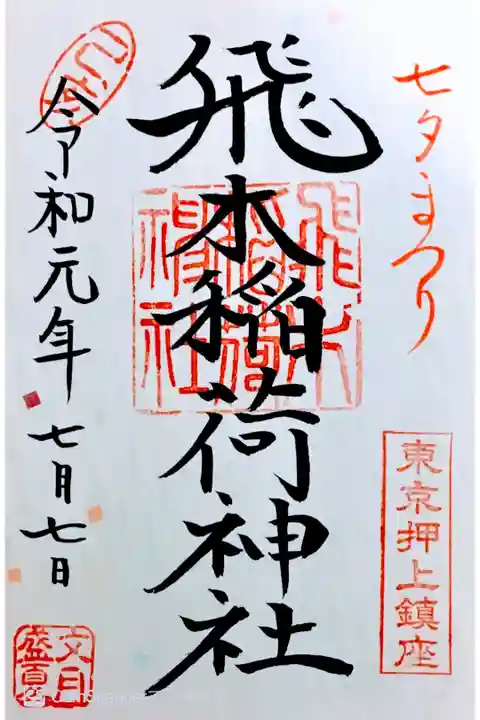 七夕まつり
東京押上鎮座
飛木稲荷神社
飛木
稲荷
神社
令和元年七月七日
文月